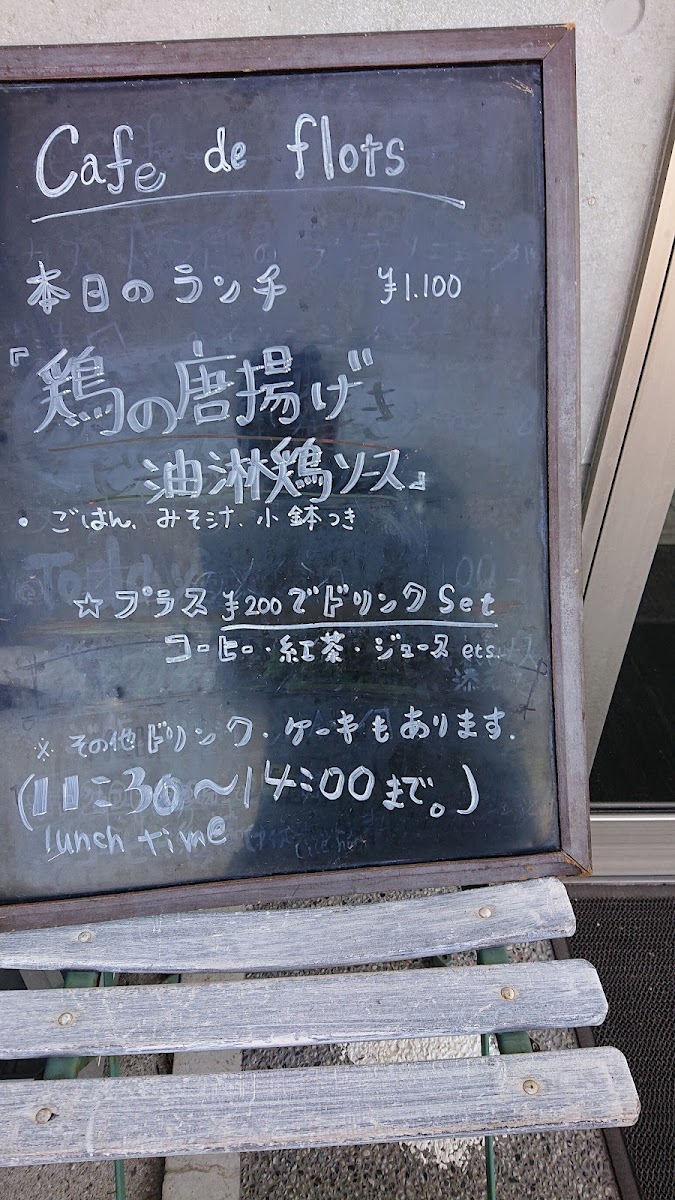 Cafe de flots
本日のランチ ¥1.100
『鶏の唐揚げ
油淋鶏ソース』
・ごはん、みそ汁、小鉢つき
☆プラス¥200でドリンクSet
コーヒー・紅茶・ジュース ets.
※その他ドリンク・ケーキもあります.
(11:30〜14:00まで。)
lunch time